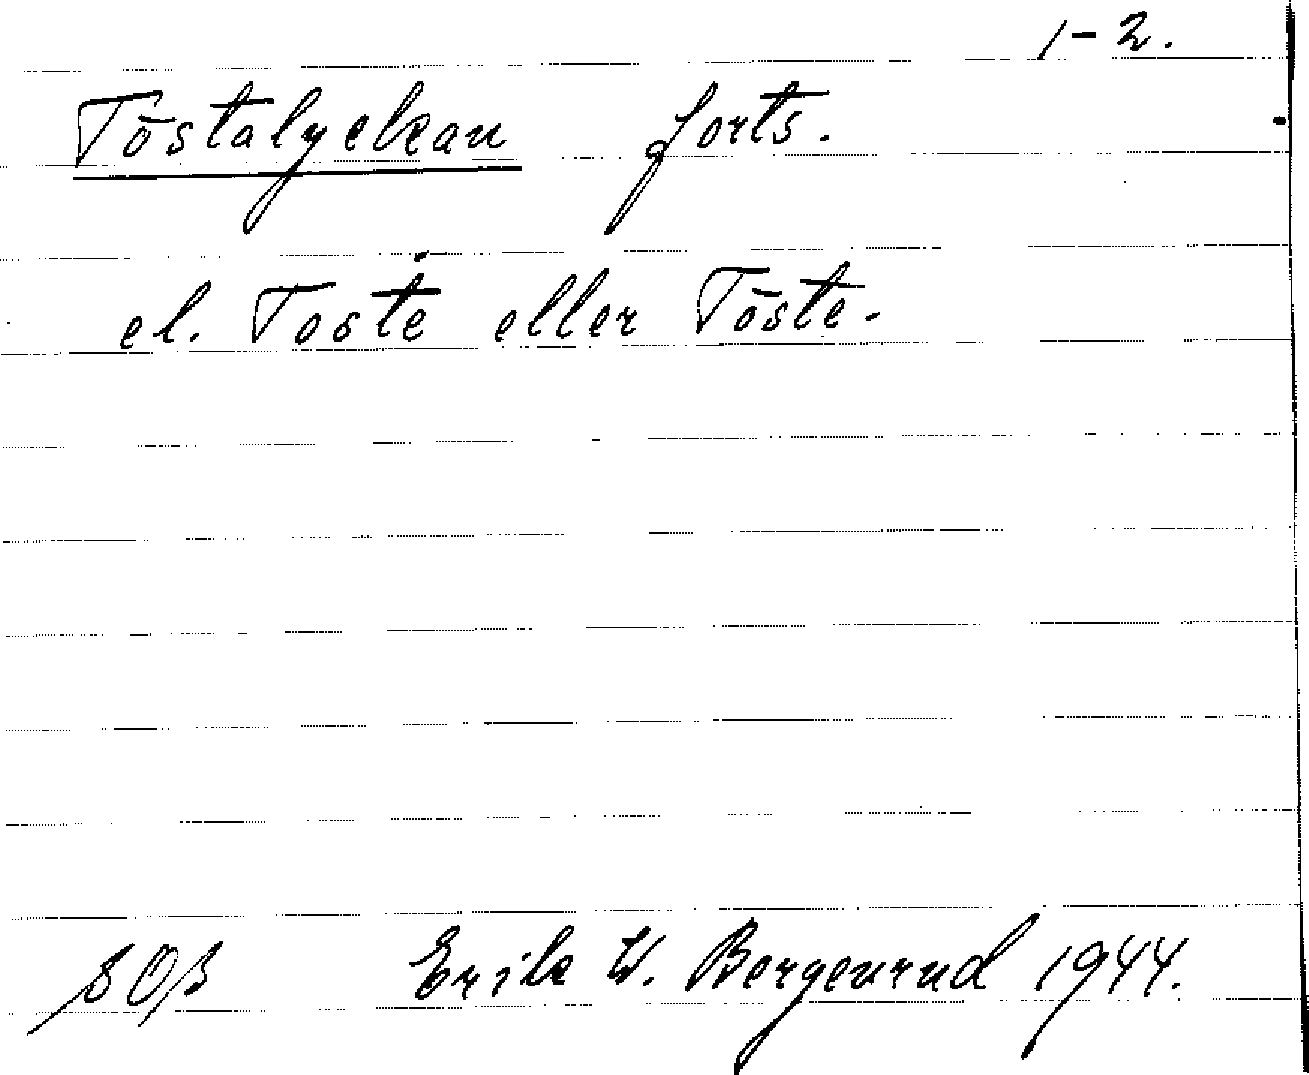 1-2.
Töstalyckan forts.
el. Toste eller Töste.
Erik W. Bergenrud 1944.